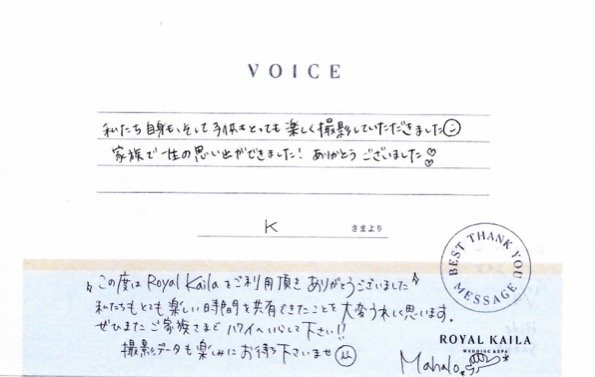 VOICE
私たち自身も、そして子供もとっても楽しく撮影していただきました
家族で一生の思い出ができました！ありがとうございました♡
K さまより
BEST THANK YOU MESSAGE
この度はRoyal Kailaをご利用頂きありがとうございました
私たちもとても楽しい時間を共有できたことを大変うれしく思います。
ぜひまたご家族さまでハワイへいらして下さい!!
撮影データも楽しみにお待ち下さいませ
ROYAL KAILA
WEDDING & SPA
Mahalo